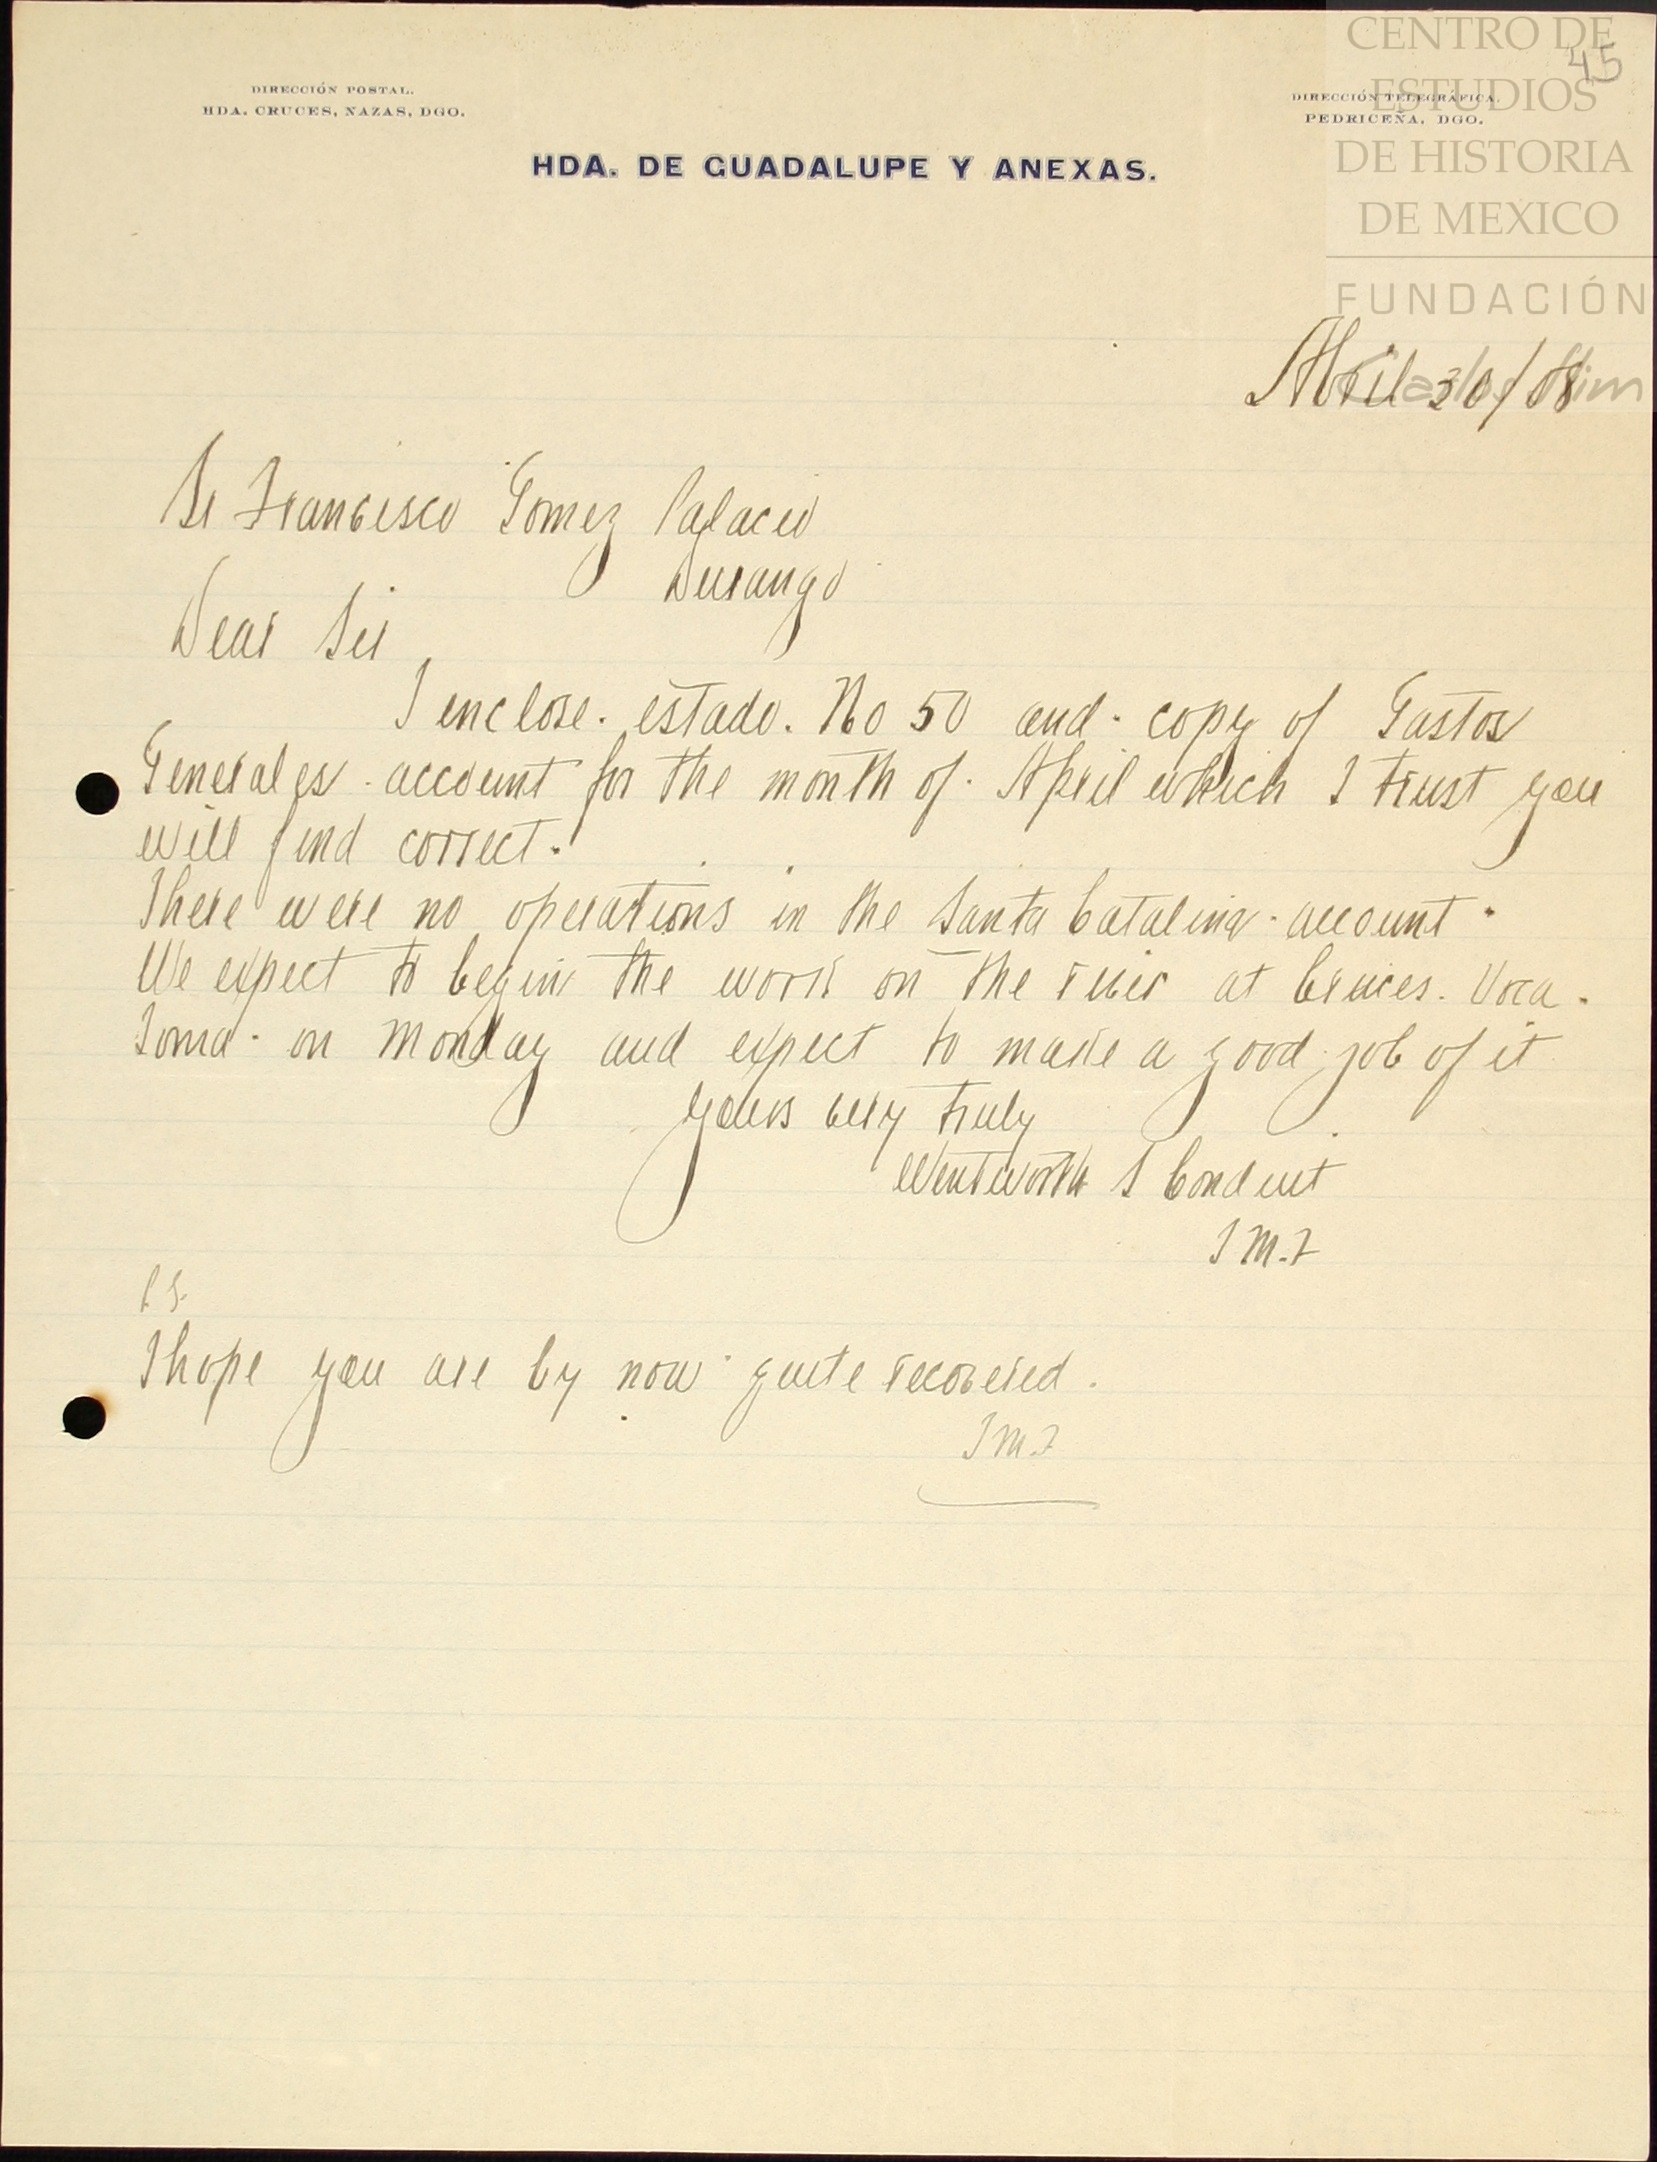 CENTRO DE
ESTUDIOS
DE HISTORIA
DE MEXICO
FUNDACIÓN
Carlos Slim
45
DIRECCIÓN POSTAL.
HDA. CRUCES, NAZAS, DGO.
DIRECCIÓN TELEGRÁFICA.
PEDRICEÑA, DGO.
HDA. DE GUADALUPE Y ANEXAS.
Abril 30/08
Sr Francisco Gomez Palacio
Durango
Dear Sir
I enclose. estado. No 50 and copy of Gastos
Generales account for the month of. April which I trust you
will find correct.
There were no operations in the Santa Catalina account.
We expect to begin the work on the river at Cruces. Boca.
Toma on Monday and expect to make a good job of it
yours very truly
Wentworth S Conduit
I M.F
P S.
I hope you are by now quite recovered.
I M.F